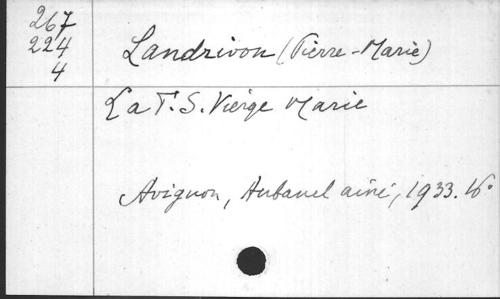 267
224
4
Landrivon (Pierre-Marie)
La T. S. Vierge Marie
Avignon, Aubanel ainé, 1933. 16°